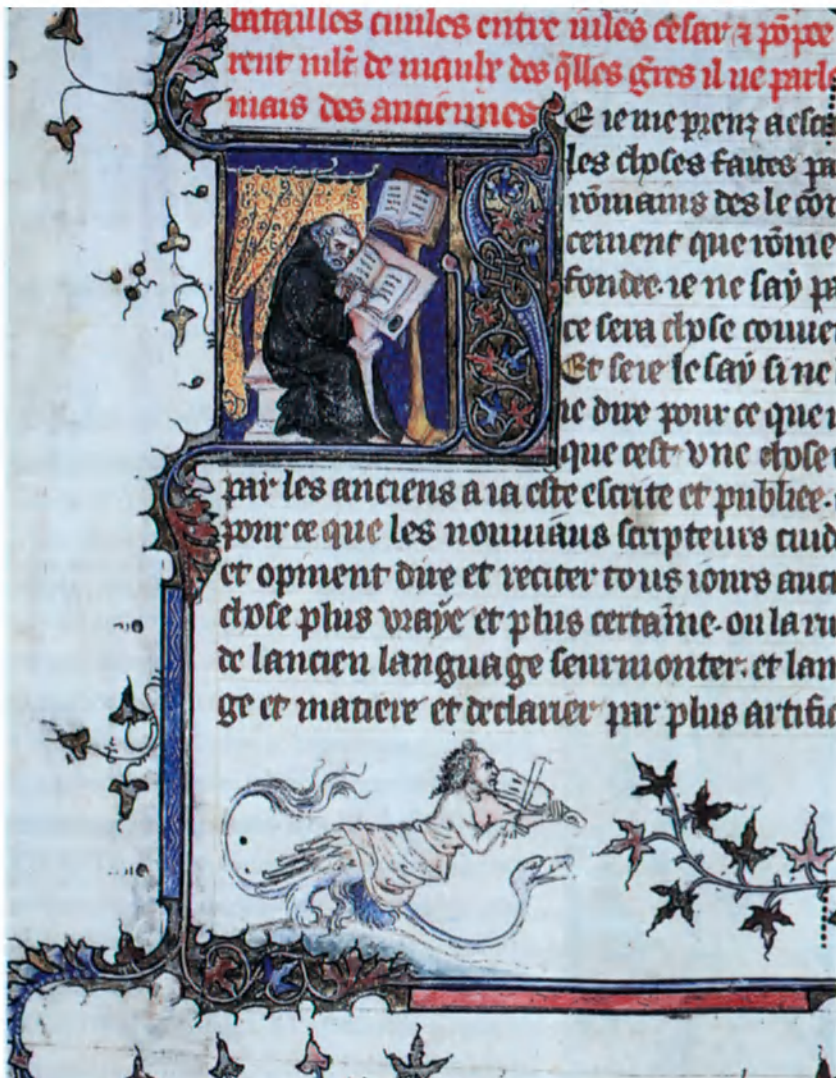 batailles ciuiles entre iules cesar ⁊ põpee
rent mlt de maulx des q̃lles gẽres il ne parle
mais des anciennes
E ie me prenz a
les choses faites pa
rommains des le com
cement que romme
fondee. ie ne say
ce sera chose
Et se ie le say si ne
ie dire pour ce que
que cest vne chose
par les anciens a ia este escrite et publiee.
pour ce que les nouuiaus scripteurs cuid
et opinent dire et reciter tous iours auc
chose plus vraye et plus certaine. ou la ru
de lancien language seurmonter. et lan
ge et matiere et declairier par plus artific